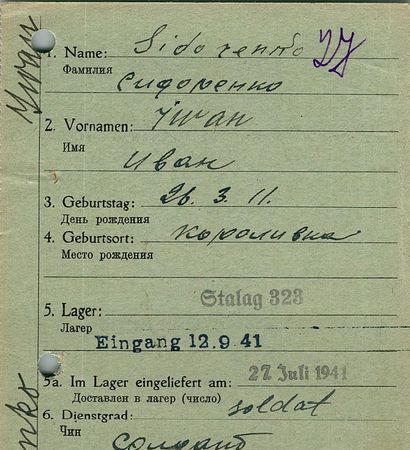 1. Name: Sidorenko
Фамилия
Сидоренко
2. Vornamen: Iwan
Имя
Иван
3. Geburtstag: 26. 3. 11.
День рождения
4. Geburtsort: Короливка
Место рождения
Stalag 323
5. Lager:
Лагер
Eingang 12.9.41
5a. Im Lager eingeliefert am: 27 Juli 1941
Доставлен в лагер (число)
6. Dienstgrad: soldat
Чин
солдат
Iwan
nko